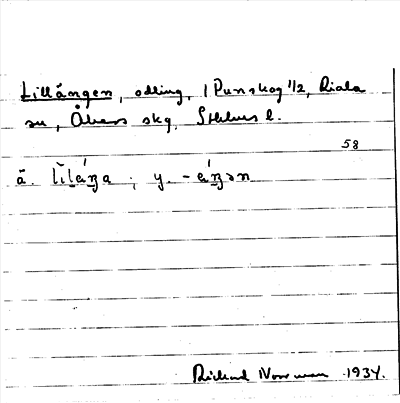 Lillängen, odling, 1 Runskog 1/2, Riala
sn, Åkers skg. Sthlms l.
58
ä. lìl̯áŋa ; y. -áŋən
Rickard Norrman 1934.